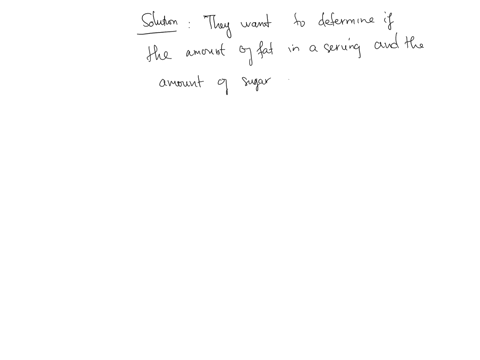 Solution : They want to determine if
the amount of fat in a serving and the
amount of sugar